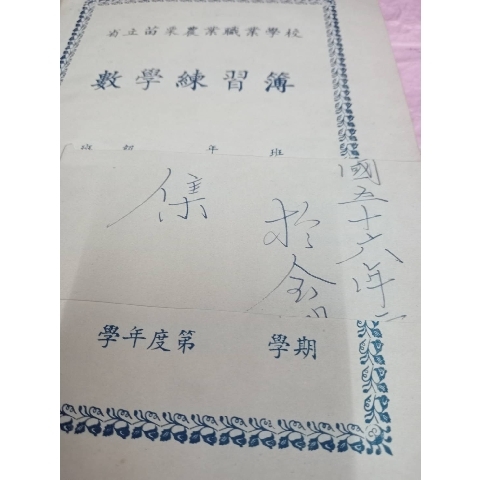 省立苗栗農業職業學校
數學練習簿
年 班
國五十六年
於金
集
學年度第 學期